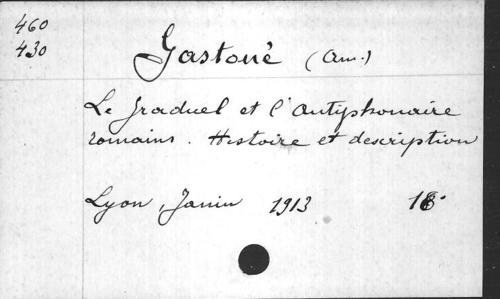 460
430
Gastoué (Am.)
Le Graduel et l'Antiphonaire
romains. Histoire et description
Lyon, Janin 1913